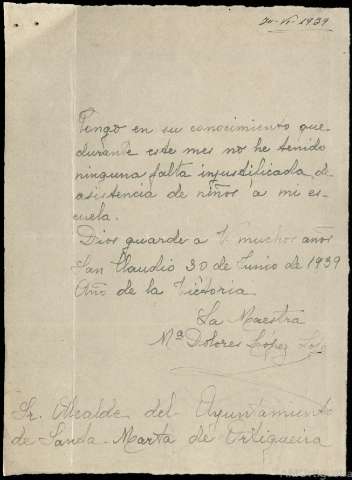 30-VI-1939
Pongo en su conocimiento que
durante este mes no he tenido
ninguna falta injustificada de
asistencia de niños a mi es-
cuela.
Dios guarde a V. muchos años
San Claudio 30 de Junio de 1939
Año de la Victoria.
La Maestra
Mª Dolores López
Sr. Alcalde del Ayuntamiento
de Santa Marta de Ortigueira